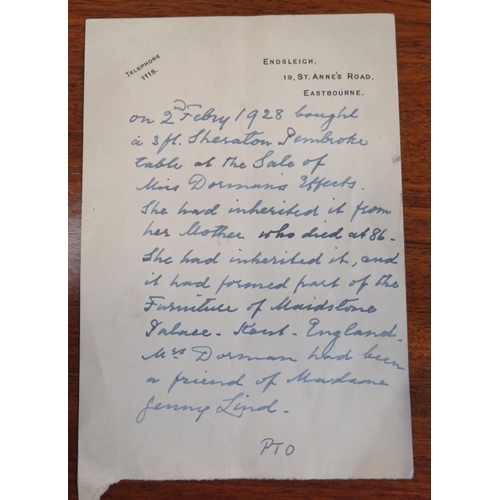 TELEPHONE
1115.
ENDSLEIGH,
19, ST. ANNE'S ROAD,
EASTBOURNE.
on 2nd Febry 1928 bought
a 3ft. Sheraton Pembroke
table at the Sale of
Miss Dorman's Effects.
She had inherited it from
her Mother who died at 86-
She had inherited it, and
it had formed part of the
Furniture of Maidstone
Palace - Kent - England -
Mrs Dorman had been
a friend of Madame
Jenny Lind -
PTO